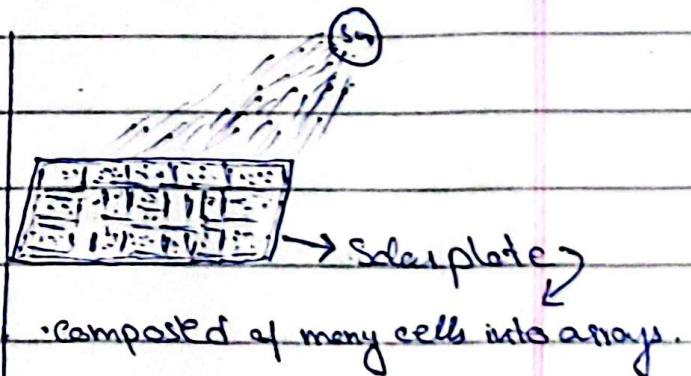 Sun
Solar plate
·composed of many cells into arrays.